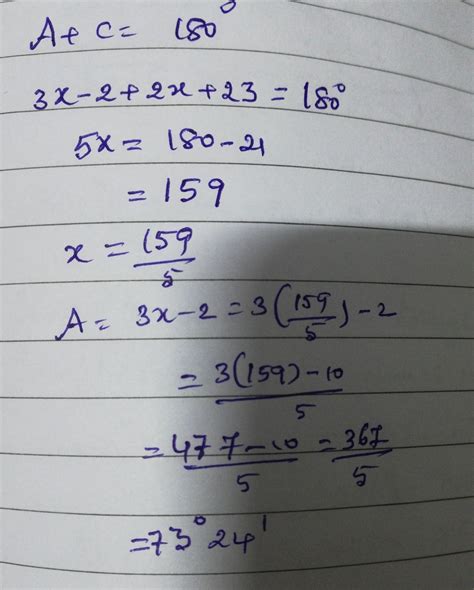 A + C = 180°
3x - 2 + 2x + 23 = 180°
5x = 180 - 21
= 159
x = 159/5
A = 3x - 2 = 3(159/5) - 2
= 3(159) - 10/5
= 477 - 10/5 = 367/5
= 73° 24'